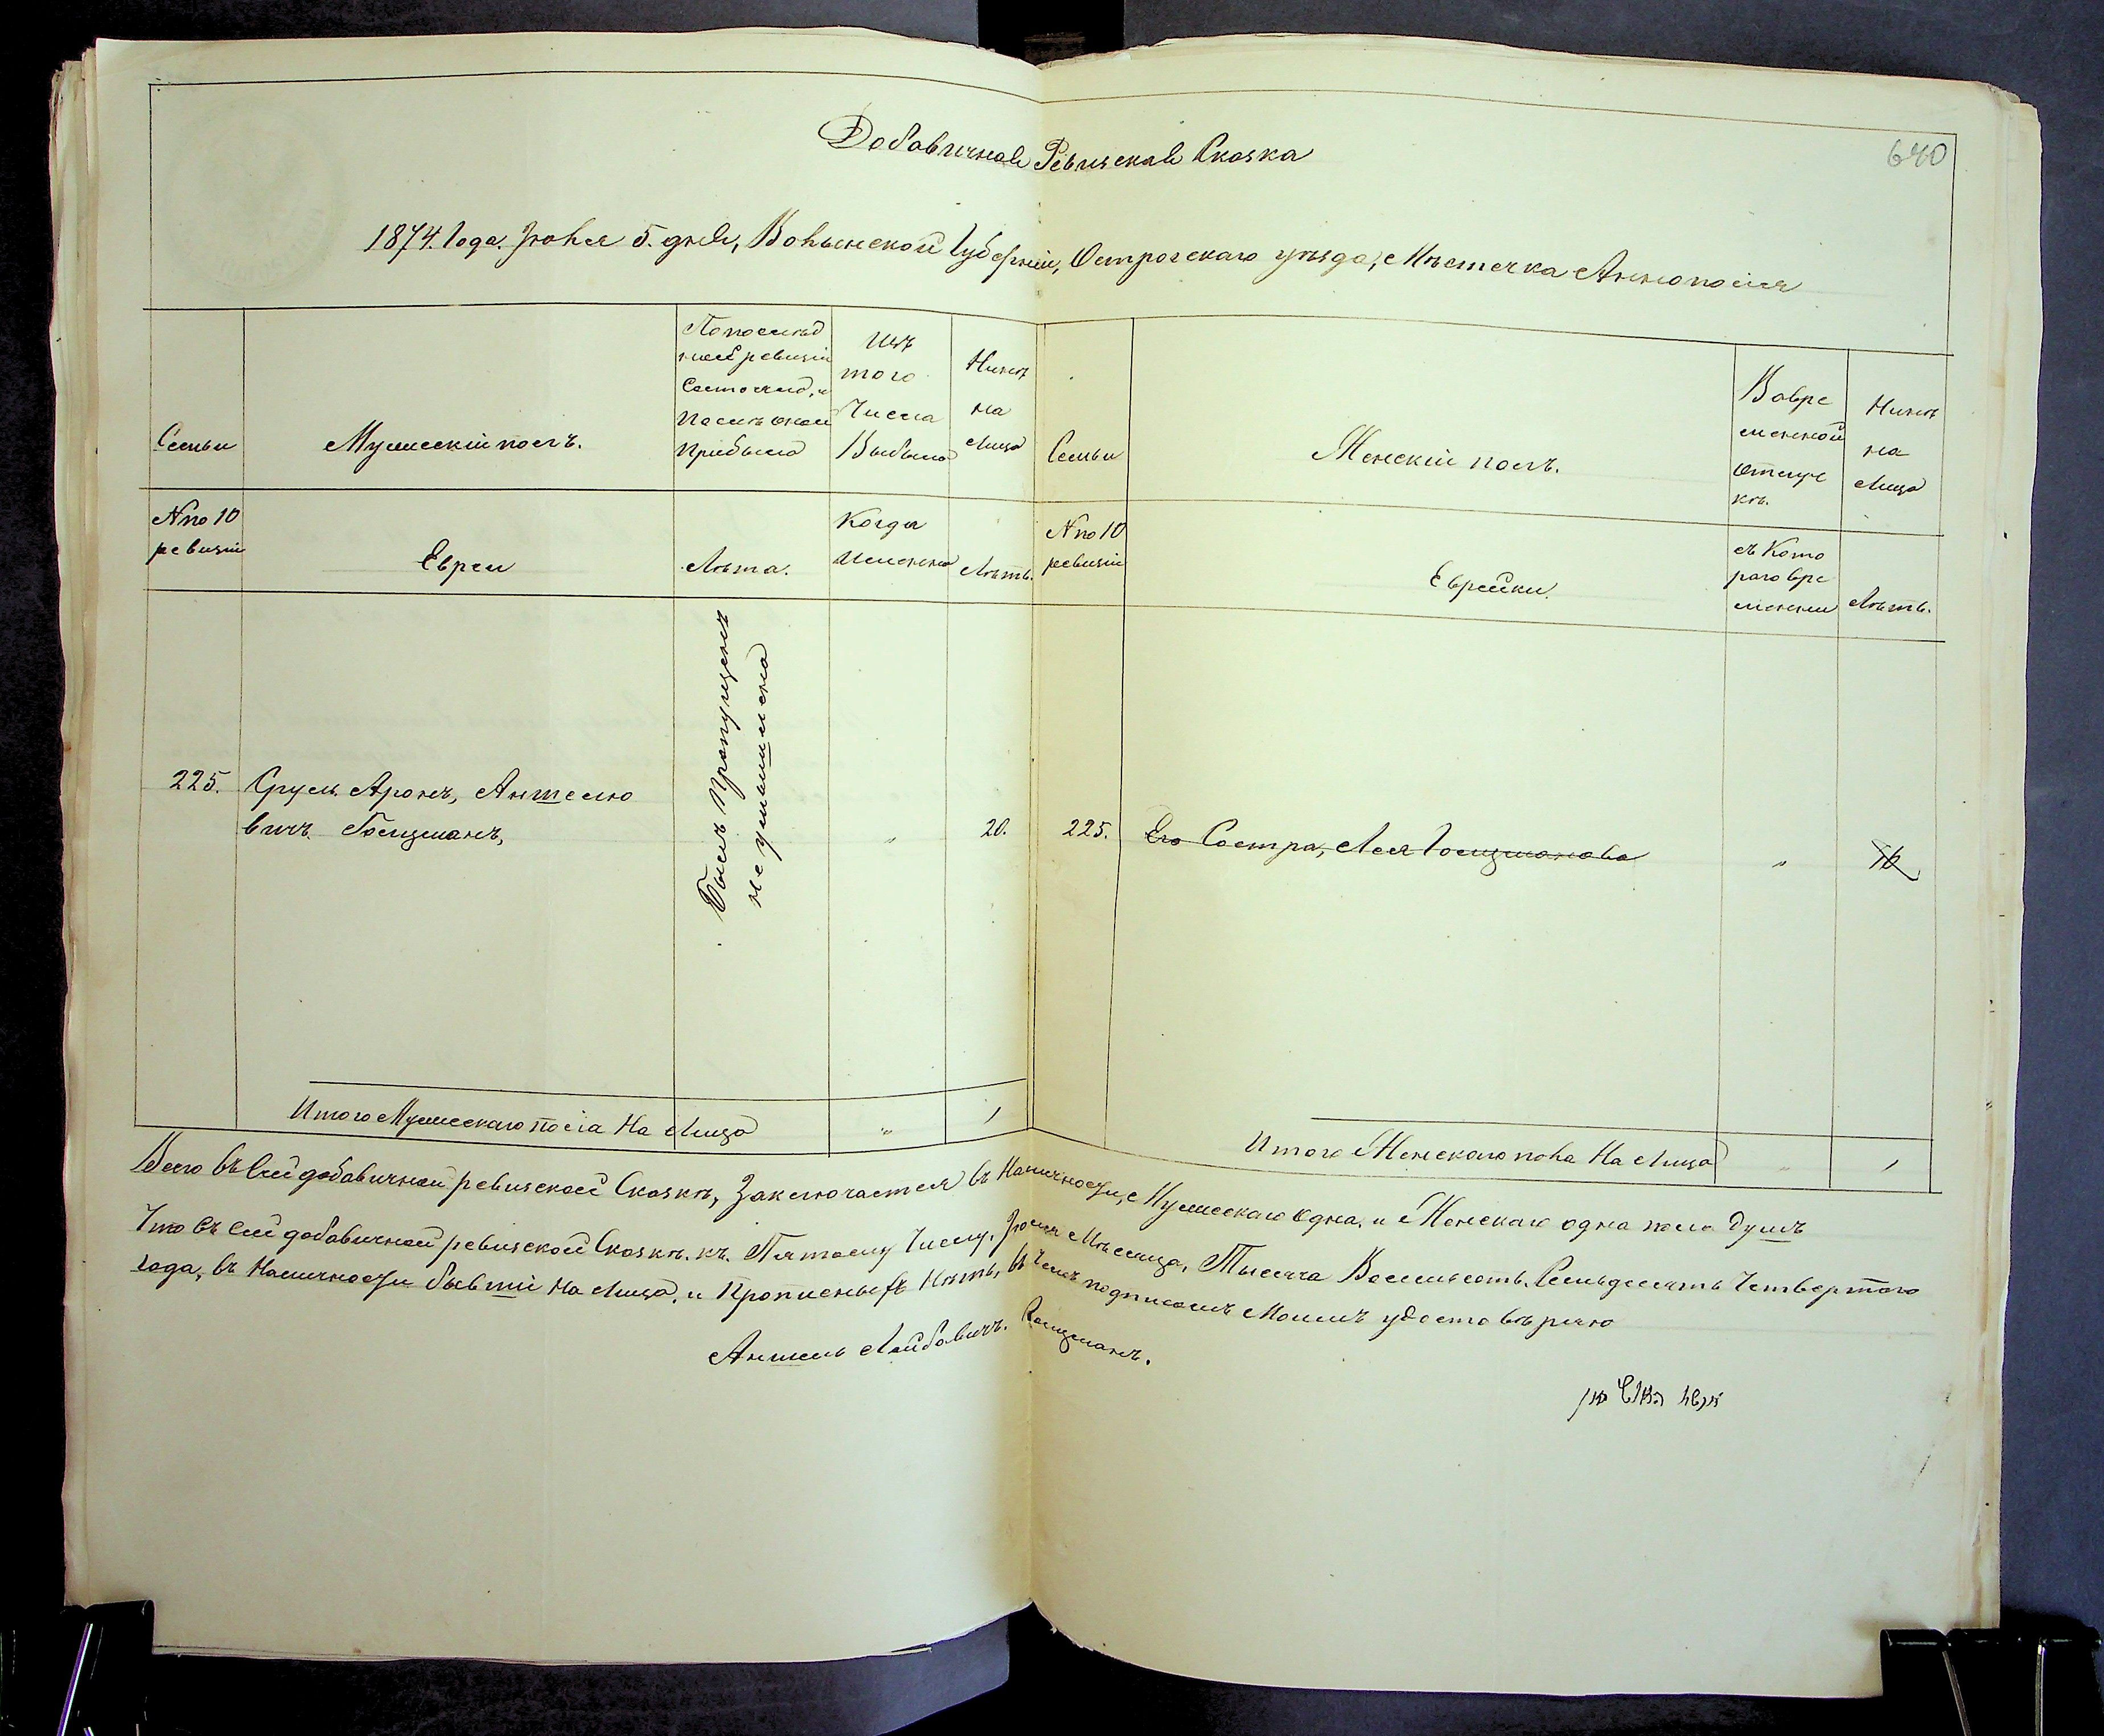 640
Добавичная Ревизская Сказка
1874. Года. Іюня 5. дня, Волынской Губерніи, Острогскаго уѣзда, Мѣстечка Аннополя
Семьи
Мужескій полъ.
По послѣд
ней ревизіи
Состояло, и
Послѣ оной
прибыло
Изъ
того
Числа
Выбыло
Нынѣ
на
Лицо
Семьи
Женскій полъ.
Вовре
менной
отлуч
кѣ.
Нынѣ
на
Лицо
№ по 10
ревизіи
Евреи
Лѣта.
Когда
Именно
Лѣтъ.
№ по 10
ревизіи
Еврейки.
съ Кото
раго вре
мении
Лѣтъ.
225.
Сруль Аронъ, Аншелю
вичъГолцманъ,
Былъ Пропущенъ
не умышлено
"
20.
225.
Его Состра, Лея Голцманова
"
16
Итого Мужескаго пола На Лицо
"
1
Итого Женскаго пола На Лицо
"
1
Всего въ Сей добавичной ревизской Сказкѣ, Заключается въ Наличности, Мужескаго Одна, и Женскаго одна пола душъ
Что въ сей добавичной ревизской Сказкѣ. къ. Пятому Числу, Іюня Мѣсяца, Тысяча Восемьсотъ. Семьдесятъ Четвертого
года, въ Наличности бывшіи На Лицо, и Прописныхъ Нѣтъ, въ Чемъ подписомъ Моимъ удостовѣряю
Аншель Лейбовичъ. Голцманъ.